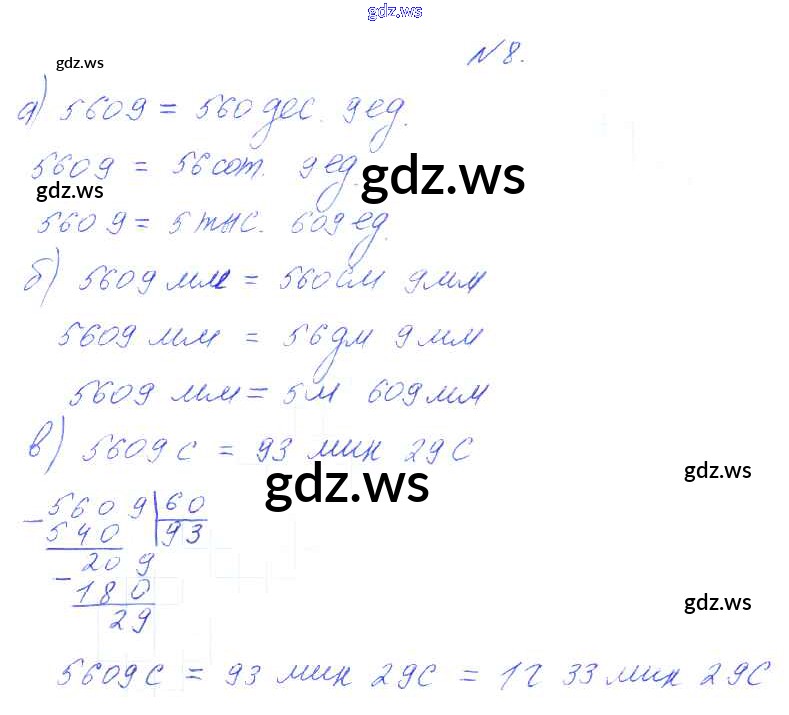 gdz.ws
N 8.
gdz.ws
а) 5609 = 560 дес. 9 ед.
5609 = 56 сот. 9 ед.
gdz.ws
gdz.ws
5609 = 5 тыс. 609 ед.
б) 5609 мм = 560 см 9 мм
5609 мм = 56 дм 9 мм
5609 мм = 5 м 609 мм
в) 5609 с = 93 мин 29 с
gdz.ws
gdz.ws
- 5609 | 60
540 | 93
- 209
180
29
gdz.ws
5609 с = 93 мин 29 с = 1 ч 33 мин 29 с